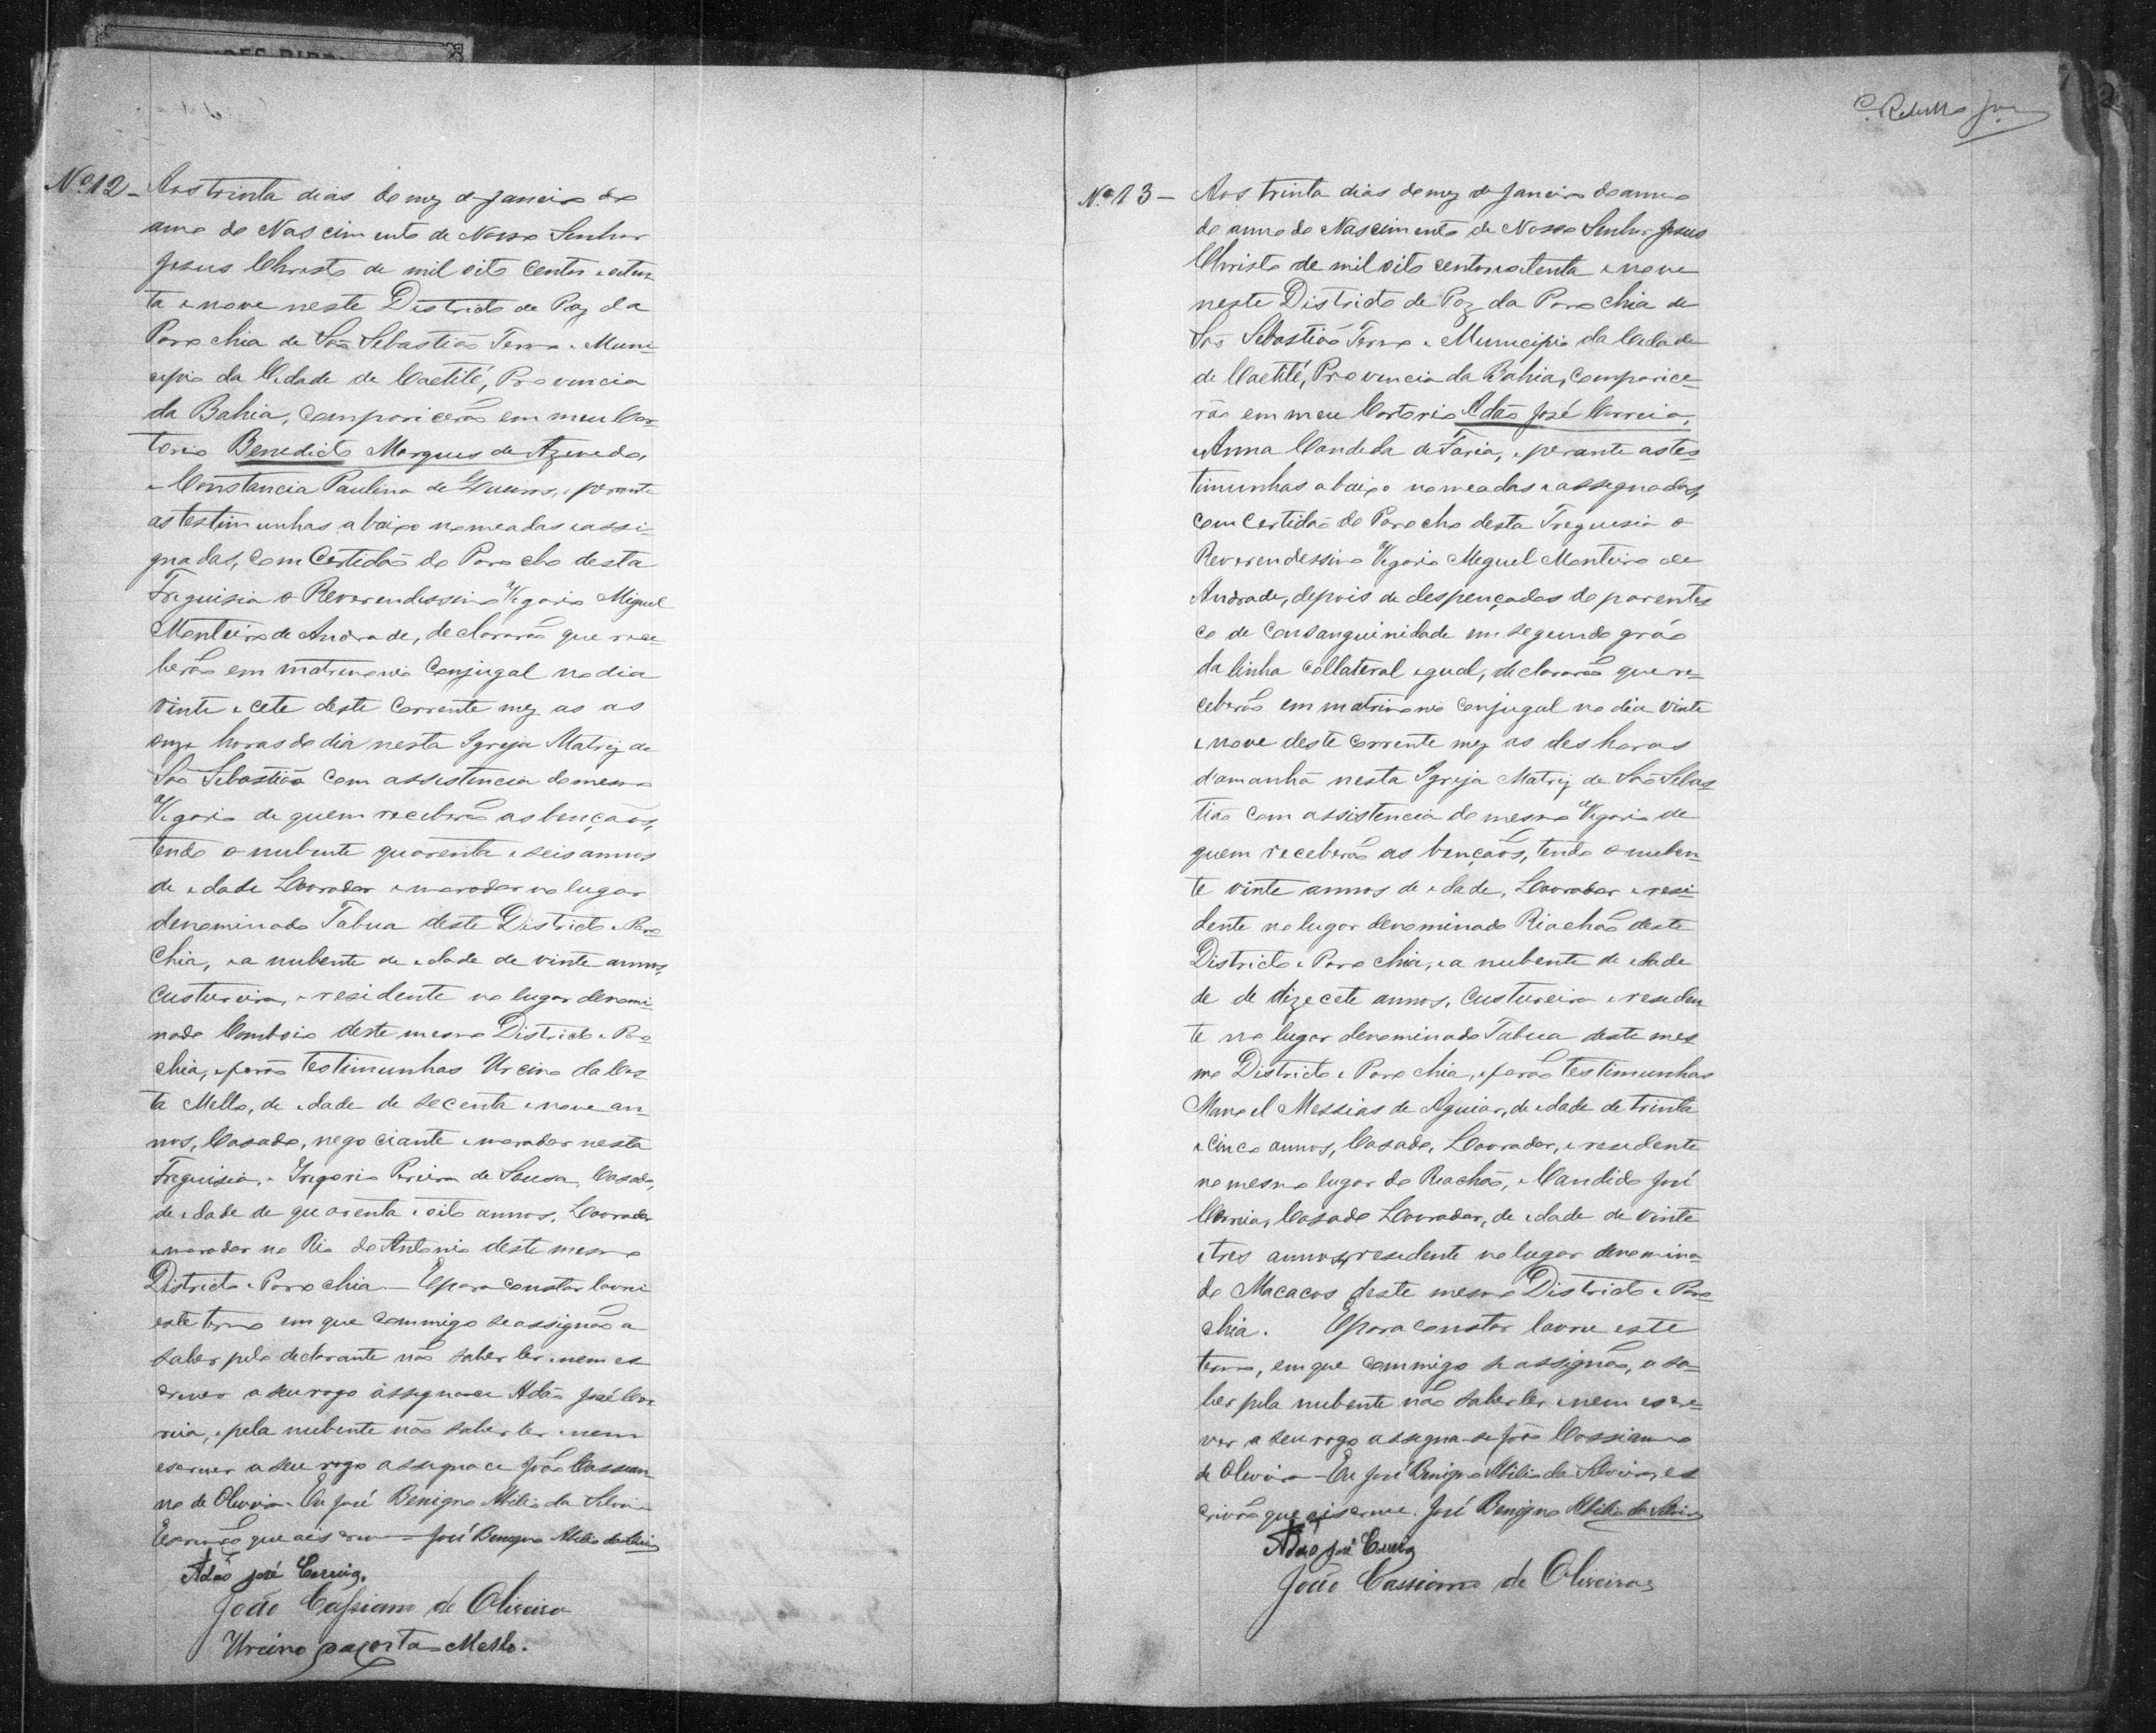 Nº 12 – Aos trinta dias do mez de Janeiro do
anno do Nascimento de Nosso Senhor
Jesus Christo de mil oito centos e oiten-
ta e nove neste Districto de Paz da
Parochia de São Sebastião Termo e Muni-
cipio da Cidade de Caetité, Provincia
da Bahia, comparicerão em meu Car-
torio Benedicto Marques de Azevedo,
e Constancia Paulina de e perante
as testimunhas abaixo nomeadas e assi-
gnadas, com Certidão do Parocho desta
Freguisia o Reverendissimo Vigario Miguel
Monteiro de Andrade, declararão que rece-
berão em matrimonio Conjugal no dia
vinte e cete deste corrente mez as as
onze horas do dia nesta Igreja Matriz de
São Sebastião com assistencia do mesmo
Vigario de quem receberão as bençãos,
tendo o nubente quarenta e seis annos
de idade Lavrador e morador no lugar
denominado Tabua deste Districto e Paro
chia, e a nubente de idade de vinte annos,
custureira, e residente no lugar denomi-
nado Comboio deste mesmo Districto e Paro
chia, e forão testimunhas Urcino da Cos
ta Mello, de idade de secenta e nove an-
nos, Casado, negociante e morador nesta
Freguisia, e Gregorio Pereira de Sousa, Casado,
de idade de quarenta e oito annos, Lavrador
e morador no Rio do Antonio deste mesmo
Districto e Parochia. — E para constar lavrei
este termo em que commigo se assignão a
saber pelo declarante não saber ler e nem es
crever a seu rogo assigna-ce Adão José Cor
reia, e pela nubente não saber ler e nem
escrever a seu rogo assigna ce João Cassian
no de Oliveira. Eu José Benigno Abilio da Silveira
Escrivão que a iscrevi — José Benigno Abilio da Silveira
Adão José Correia.
João Cassiano de Oliveira
Urcino da Costa Mello.
C. Rebello Jor
2
Nº 13 – Aos trinta dias do mez de Janeiro do anno
do anno do Nascimento de Nosso Senhor Jesus
Christo de mil oito centos e oitenta e nove
neste Districto de Paz da Parochia de
São Sebastião Termo e Municipio da Cidade
de Caetité, Provincia da Bahia, comparice-
rão em meu Cartorio Adão José Correia,
e Anna Candida de Faria, e perante as tes-
timunhas abaixo nomeadas e assegnadas,
com certidão do Parocho desta Freguesia o
Reverendessimo Vigario Meguel Monteiro de
Andrade, depois de despençados do parentes
co de consanguinidade em segundo gráo
da linha collateral egual, declararão que re-
ceberão em matrimonio conjugal no dia vinte
e nove deste corrente mez as des horas
d'amanhã nesta Igreja Matriz de São Sebas
tião com assistencia do mesmo Vigario de
quem receberão as bençãos, tendo o nuben-
te vinte annos de idade, Lavrador e resi-
dente no lugar denominado Riachão deste
Districto e Parochia, e a nubente de idade
de de dizecete annos, custureira e residen
te no lugar denominado Tabua deste mes
mo Districto e Parochia, e forão testimunhas
Manoel Messias de Aguiar, de idade de trinta
e cinco annos, Casado, Lavrador, e residente
no mesmo lugar do Riachão, e Candido José
Correia, Casado Lavrador, de idade de vinte
e tres annos, residente no lugar denomina-
do Macacos deste mesmo Districto e Paro
chia. E para constar lavrei este
termo, em que commigo se assignão, a sa-
ber pela nubente não saber ler e nem escre-
ver a seu rogo assegna-se João Cassianno
de Oliveira – Eu José Benigno Abilio da Silveira, es
crivão que a iscrevi. José Benigno Abilio da Silveira
Adão José Correia
João Cassiano de Oliveira